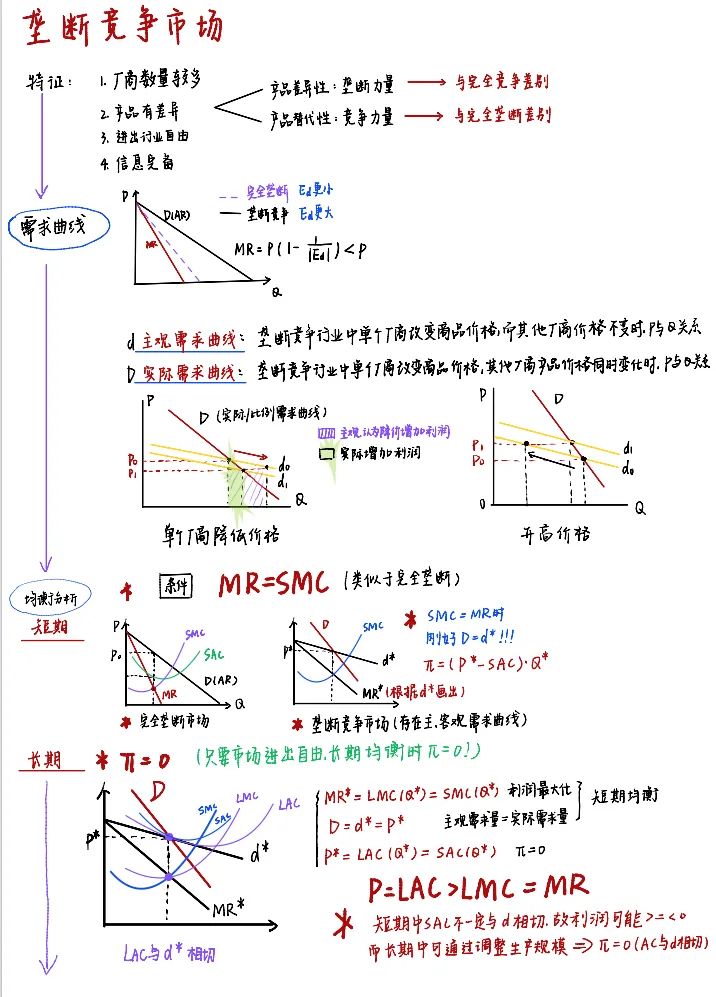 垄断竞争市场
特征：
1. 厂商数量较多
2. 产品有差异
3. 进出行业自由
4. 信息完备
产品差异性：垄断力量 → 与完全竞争差别
产品替代性：竞争力量 → 与完全垄断差别
需求曲线
P
D(AR)
MR
Q
完全垄断 Ed更小
垄断竞争 Ed更大
MR=P(1-1/|Ed|)<P
d 主观需求曲线：垄断竞争行业中单个厂商改变商品价格，而其他厂商价格不变时，P与Q关系
D 实际需求曲线：垄断竞争行业中单个厂商改变商品价格，其他厂商产品价格同时变化时，P与Q关系
P
D (实际/比例需求曲线)
P₀
P₁
d₀
d₁
Q
主观认为降价增加利润
实际增加利润
单个厂商降低价格
P
D
P₁
P₀
d₁
d₀
0
Q
升高价格
均衡分析
短期
* 条件 MR=SMC (类似于完全垄断)
P
SMC
P₀
SAC
D(AR)
MR
Q
* 完全垄断市场
D
SMC
P*
d*
MR* (根据d*画出)
* 垄断竞争市场(存在主、客观需求曲线)
* SMC=MR时
刚好D=d*!!!
π=(P*-SAC)·Q*
长期
* π=0 (只要市场进出自由，长期均衡时π=0!)
D
SMC
SAC
LMC
LAC
P*
d*
MR*
LAC与d*相切
MR*=LMC(Q*)=SMC(Q*) 利润最大化
D=d*=P* 主观需求量=实际需求量
短期均衡
P*=LAC(Q*)=SAC(Q*) π=0
P=LAC>LMC=MR
* 短期中SAC不一定与d相切，故利润可能>=<0
而长期中可通过调整生产规模 ⇒ π=0(AC与d相切)